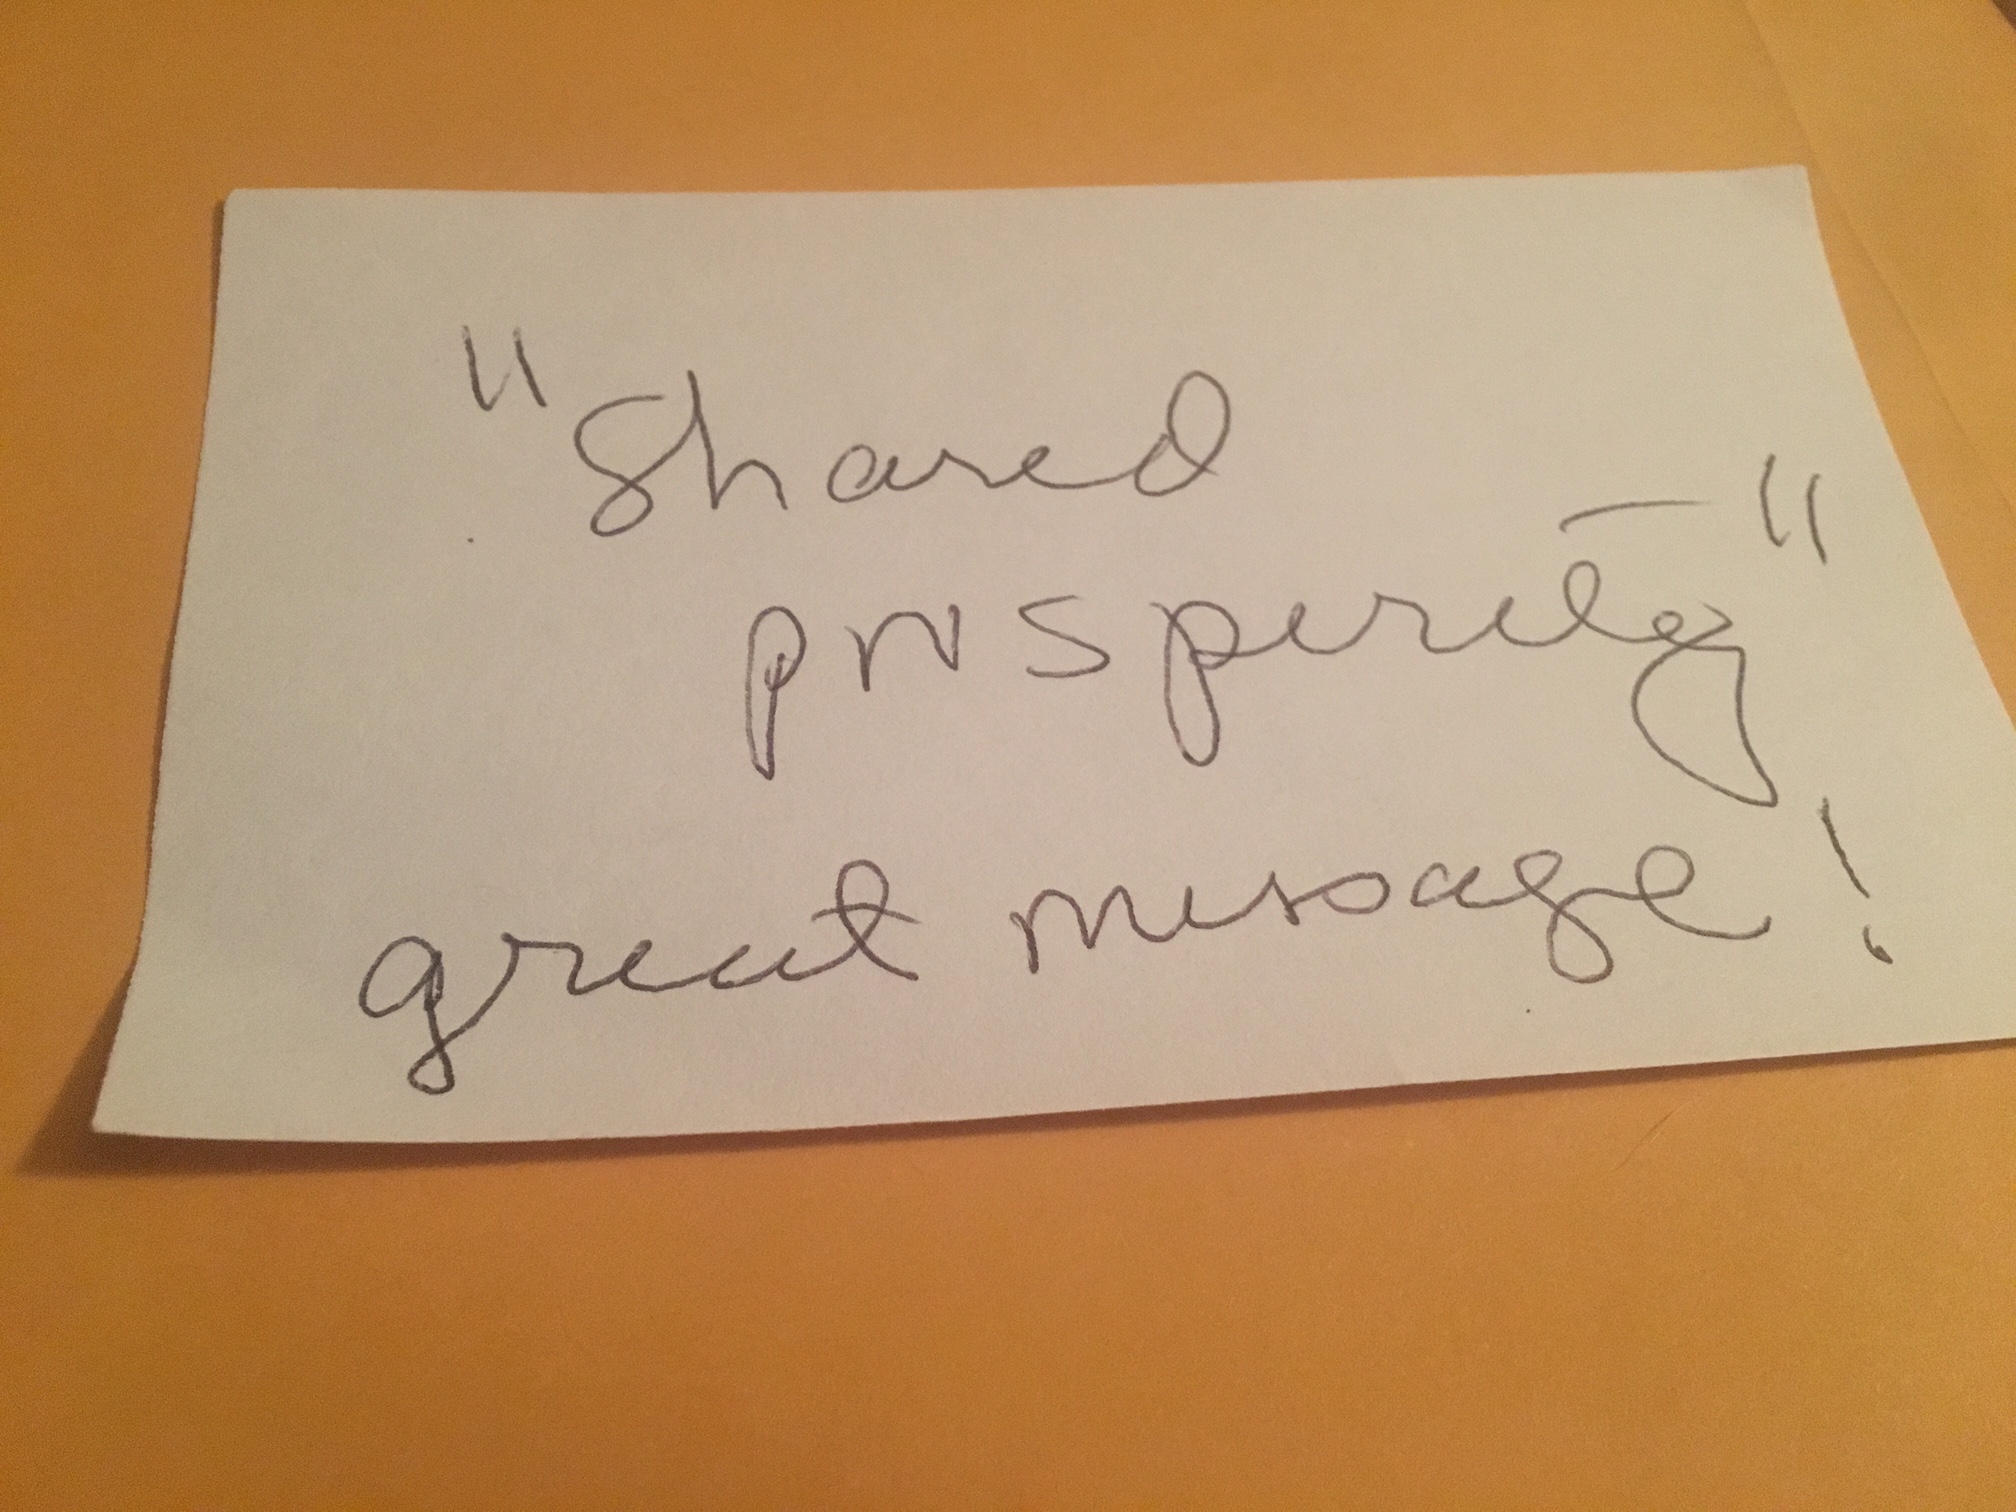 "Shared
prosperity"
great message!